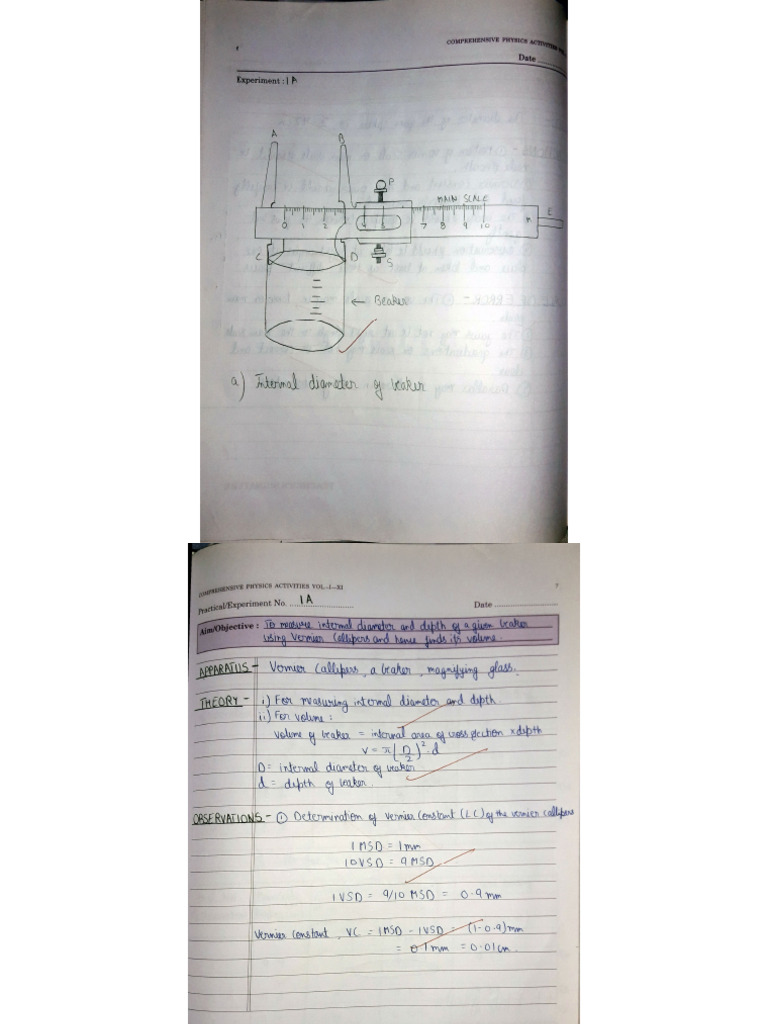 COMPREHENSIVE PHYSICS ACTIVITIES VOL.
Date
Experiment : 1A
A
B
P
MAIN SCALE
E
0 1 2 4 5 7 8 9 10
M
C
D
S
← Beaker
a) Internal diameter of beaker
COMPREHENSIVE PHYSICS ACTIVITIES VOL.-I-XI
Practical/Experiment No. 1A
Date
Aim/Objective : To measure internal diameter and depth of a given beaker
using Vernier Callipers and hence finds its volume.
APPARATUS - Vernier Callipers, a beaker, magnifying glass.
THEORY - i) For measuring internal diameter and depth.
ii) For volume :
Volume of beaker = internal area of cross section × depth
V = π(D/2)² · d
D = internal diameter of beaker
d = depth of beaker.
OBSERVATIONS - ① Determination of Vernier Constant (LC) of the vernier callipers
1 MSD = 1mm
10 VSD = 9 MSD
1 VSD = 9/10 MSD = 0.9 mm
Vernier Constant, VC = 1 MSD - 1 VSD = (1-0.9) mm
= 0.1 mm = 0.01 cm.